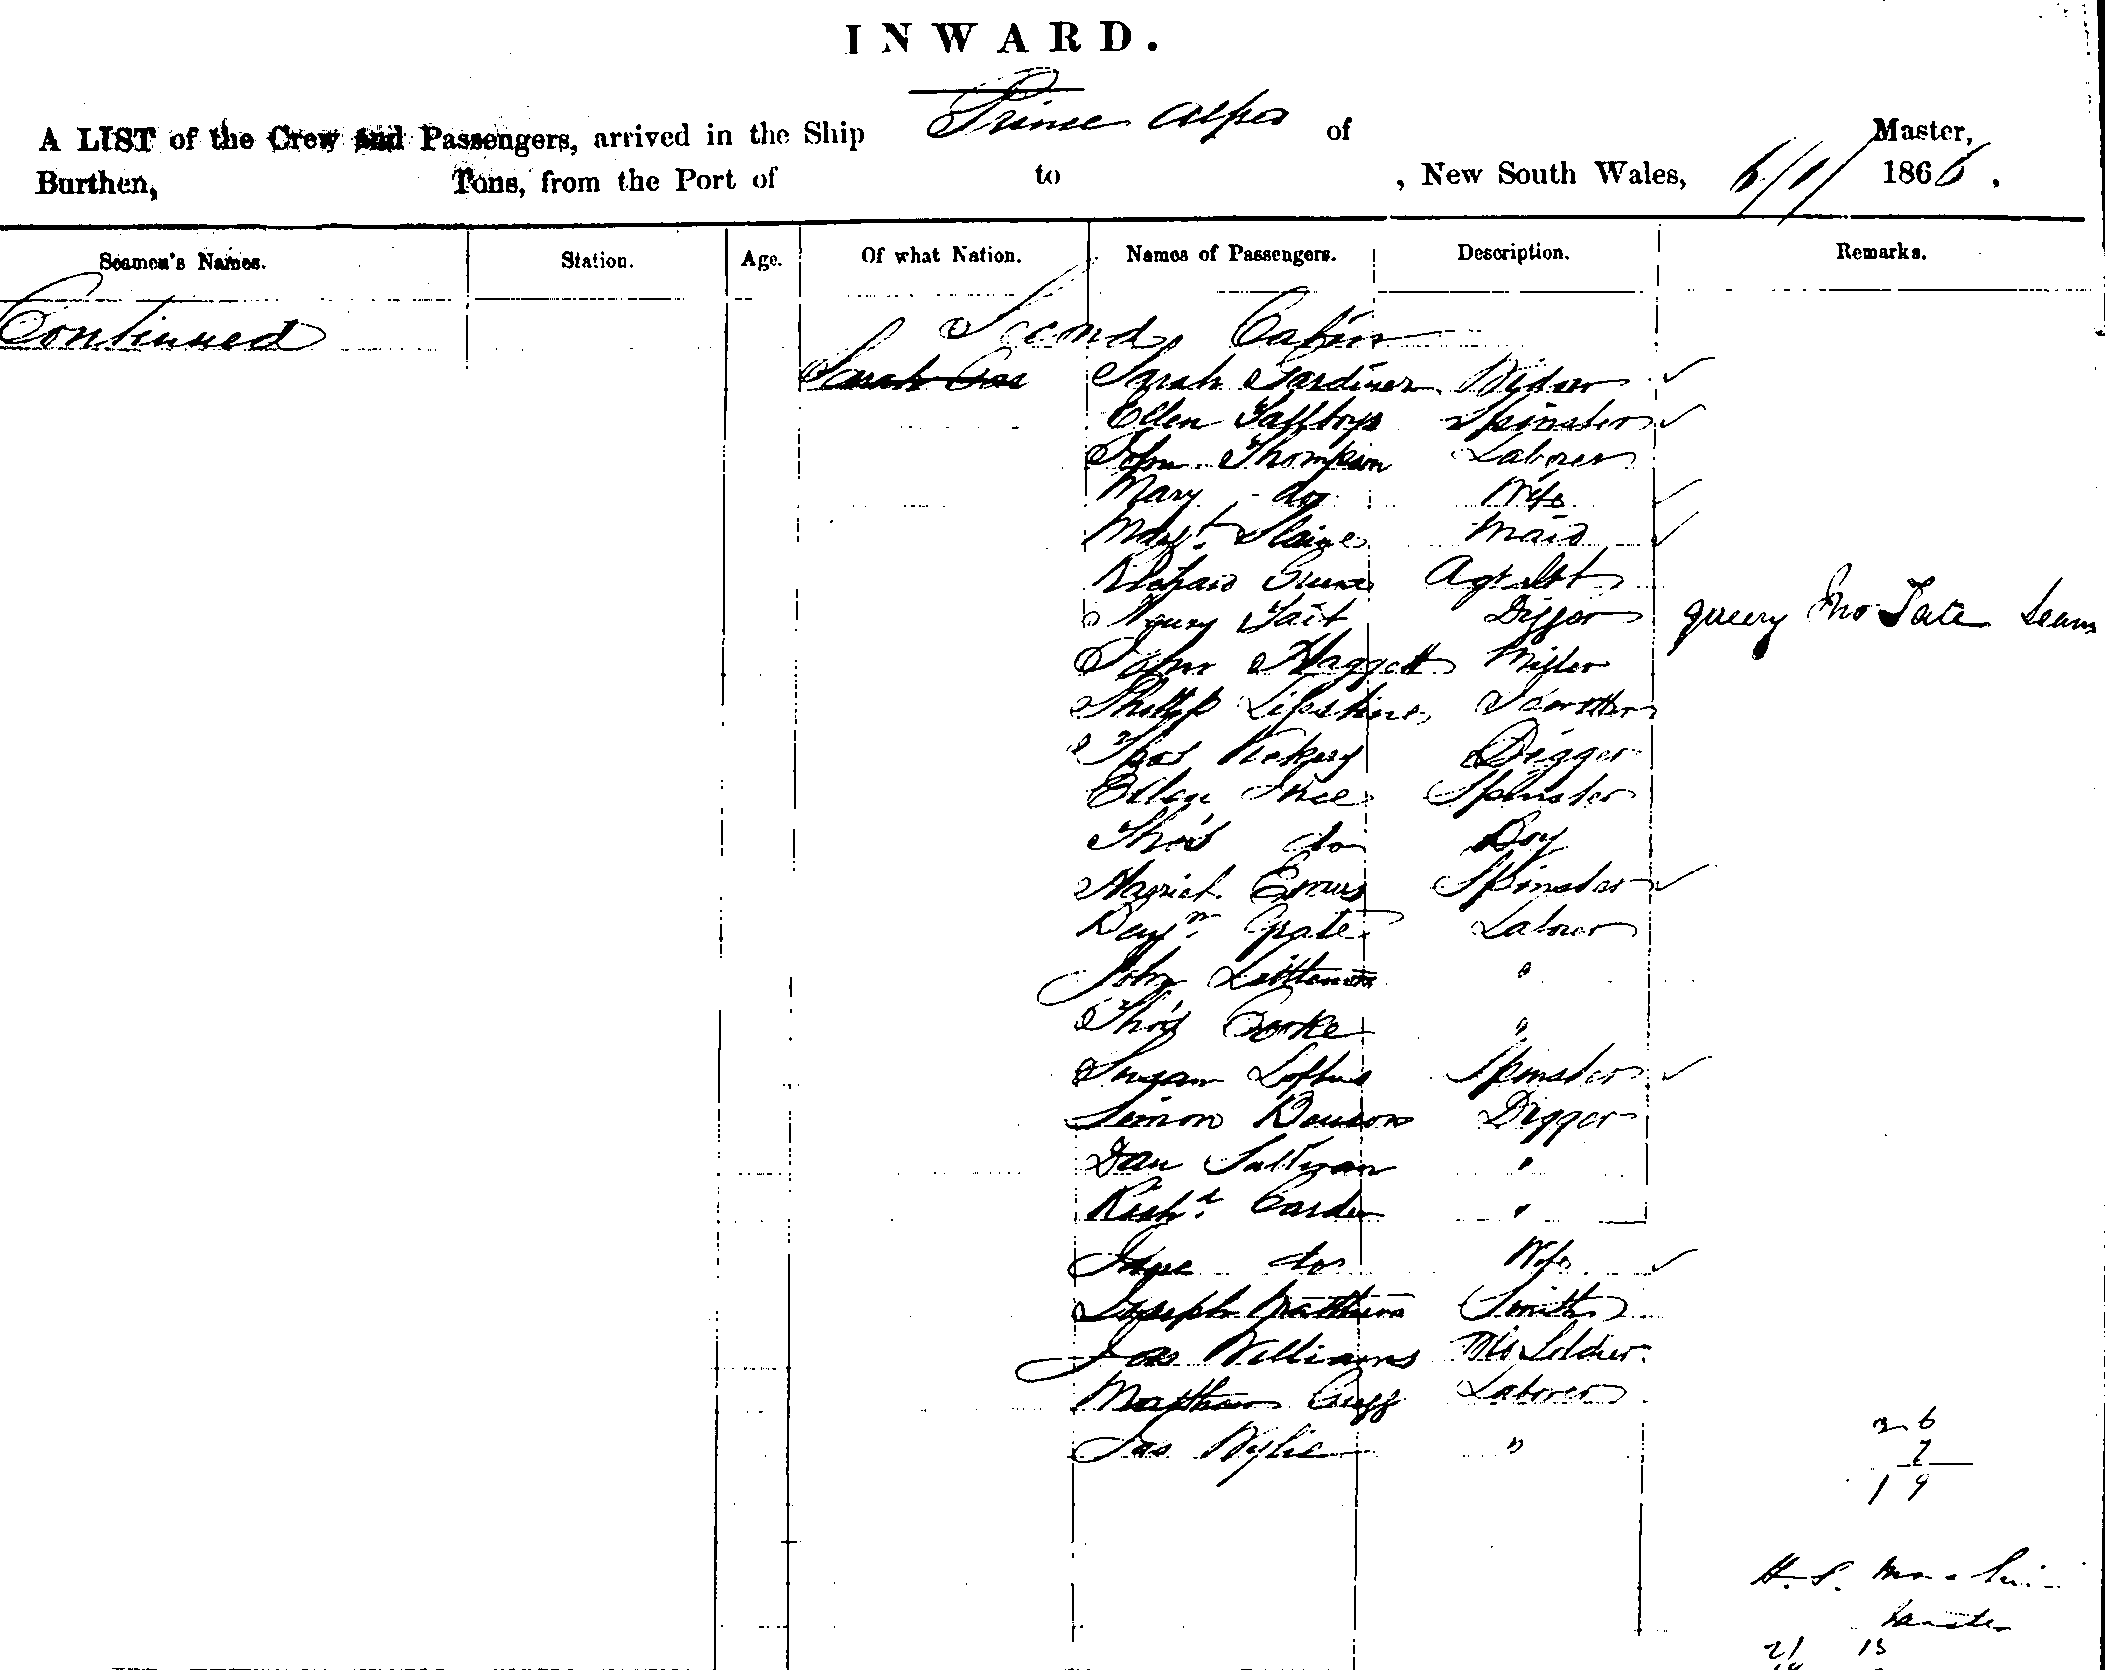 INWARD.
A LIST of the Crew and Passengers, arrived in the Ship Prince Alfred of Master,
Burthen, Tons, from the Port of to , New South Wales, 6/1/ 1866.
Seamen's Names. Station. Age. Of what Nation. Names of Passengers. Description. Remarks.
Continued Second Cabin
Sarah Sarah Gardiner Widow ✓
Ellen Spinster ✓
John Thompson Laborer
Mary do Wife ✓
Margt. Maid ✓
Richard
Henry Tait Digger query Jno Tate
John Haggett Miller
Philip Lipstine
Thos Vickery Digger
Ellen Price Spinster
Thos do Boy
Harriet Evans Spinster ✓
Benjn. Laborer
John "
Thos Cooke "
Susan Loftus Spinster ✓
Simon Digger
Dan Sullivan "
Richd. Carder "
Jane do Wife ✓
Joseph Matthews Smith
Jas Williams Soldier
Cuff Laborer
Jas Wylie "
26
7
19
H. S.
21 13